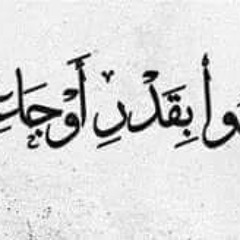 بِقَدْرِ أَوْجَاعِ